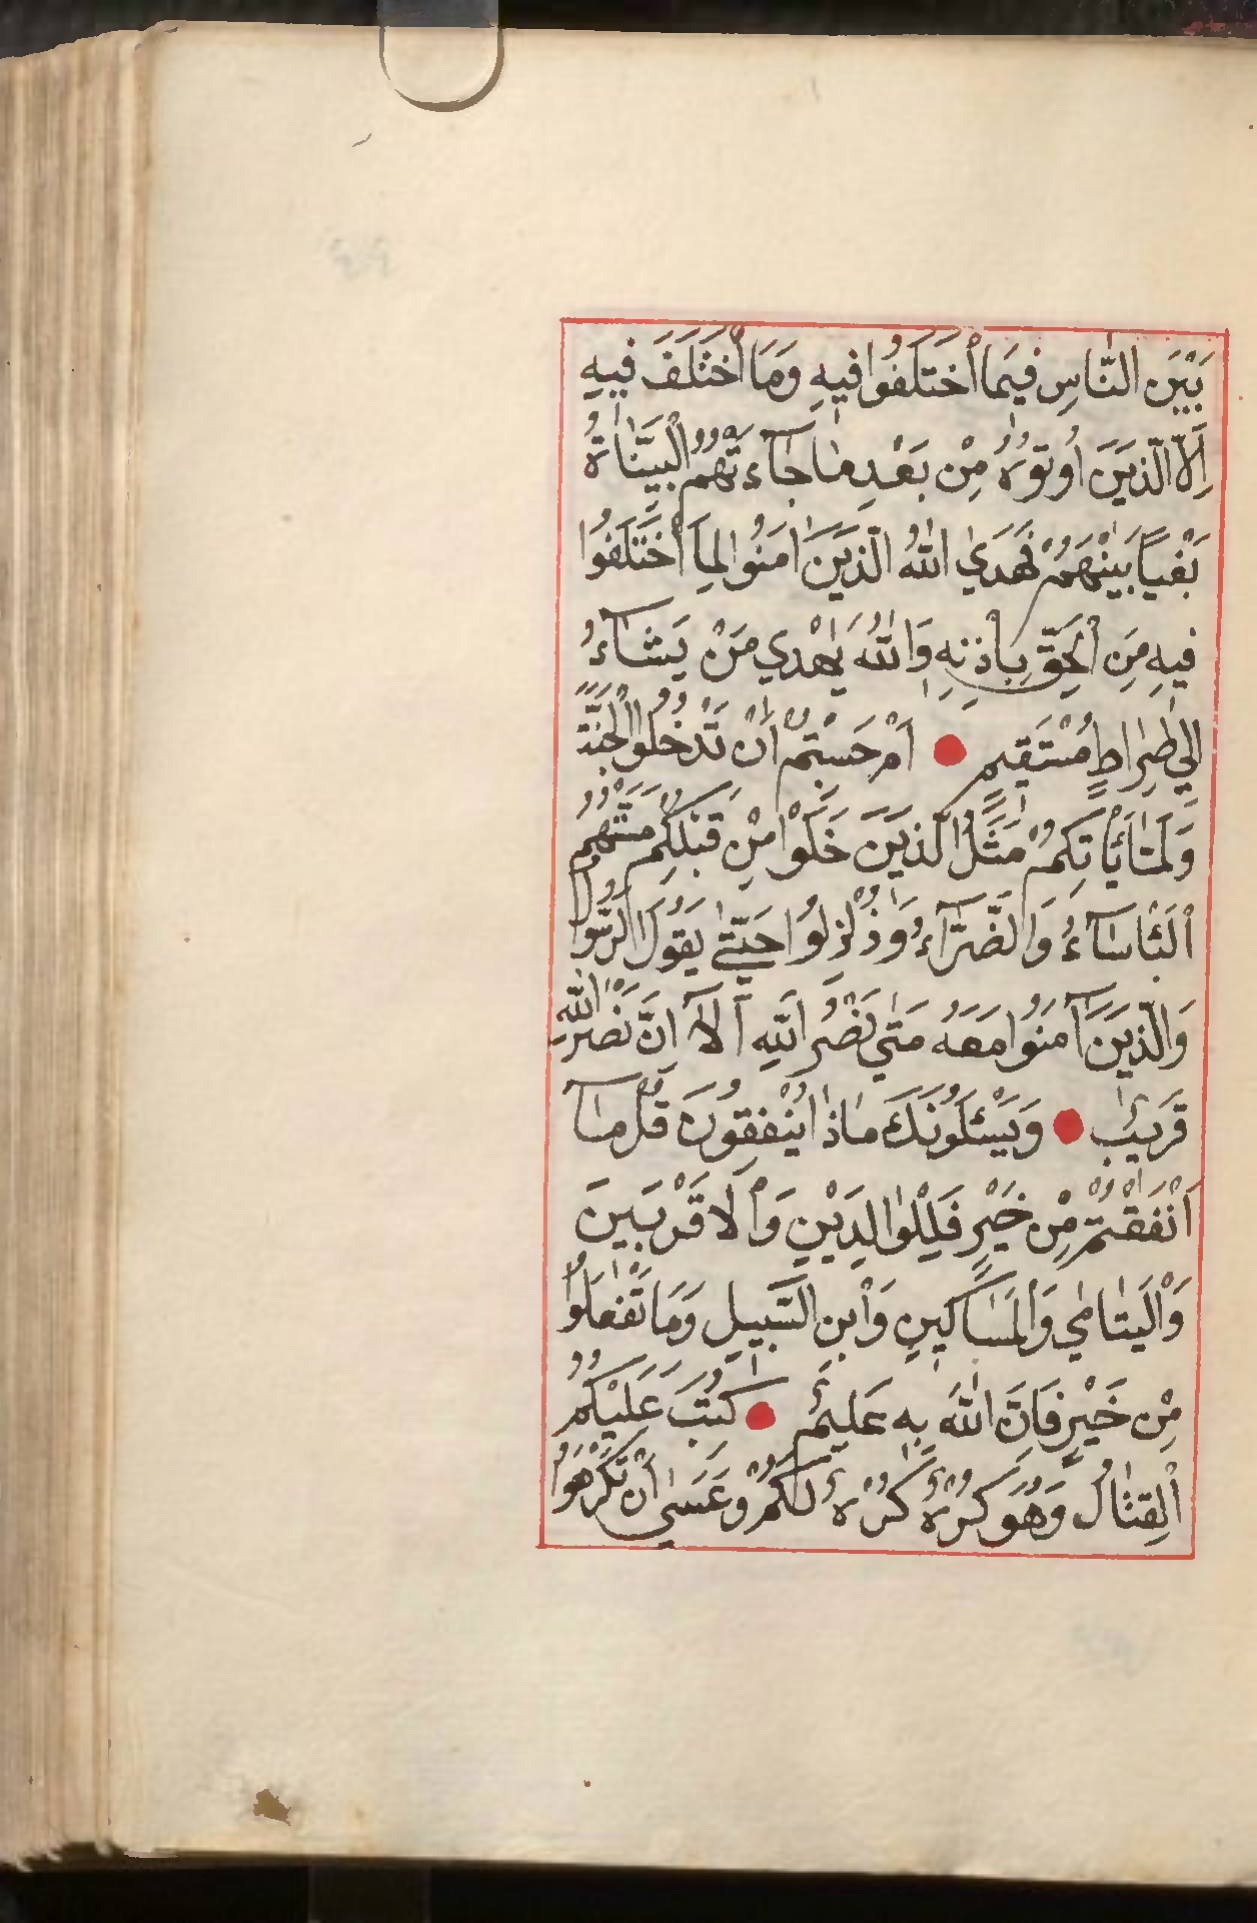 بَيْنَ النَّاسِ فِيمَا أَخْتَلَفُوا فِيهِ وَمَا أَخْتَلَفَ فِيهِ
إِلَّا الَّذِينَ أُوتُوهُ مِنْ بَعْدِ مَا جَآءَتْهُمُ الْبَيِّنَاتُ
بَغْيًا بَيْنَهُمْ فَهَدَىٰ اللّٰهُ الَّذِينَ اٰمَنُوا لِمَا أَخْتَلَفُوا
فِيهِ مِنَ الْحَقِّ بِاِذْنِهِ وَاللّٰهُ يَهْدِي مَنْ يَشَآءُ
اِلٰي صِرَاطٍ مُسْتَقِيمٍ ● اَمْ حَسِبْتُمْ اَنْ تَدْخُلُوا الْجَنَّةَ
وَلَمَّا يَأْتِكُمْ مَثَلُ الَّذِينَ خَلَوْا مِنْ قَبْلِكُمْ مَسَّتْهُمُ
الْبَأْسَآءُ وَالضَّرَّآءُ وَزُلْزِلُوا حَتَّىٰ يَقُولَ الرَّسُولُ
وَالَّذِينَ اٰمَنُوا مَعَهُ مَتٰي نَصْرُ اللّٰهِ اَلَآ اِنَّ نَصْرَ اللّٰهِ
قَرِيبٌ ● وَيَسْئَلُونَكَ مَاذَا يُنْفِقُونَ قُلْ مَآ
اَنْفَقْتُمْ مِنْ خَيْرٍ فَلِلْوٰالِدَيْنِ وَالْاَقْرَبِينَ
وَالْيَتَامٰي وَالْمَسَاكِينِ وَابْنِ السَّبِيلِ وَمَا تَفْعَلُوا
مِنْ خَيْرٍ فَاِنَّ اللّٰهَ بِهِ عَلِيمٌ ● كُتِبَ عَلَيْكُمُ
الْقِتَالُ وَهُوَ كُرْهٌ كُرْهٌ لَكُمْ وَعَسَىٰ اَنْ تَكْرَهُوا